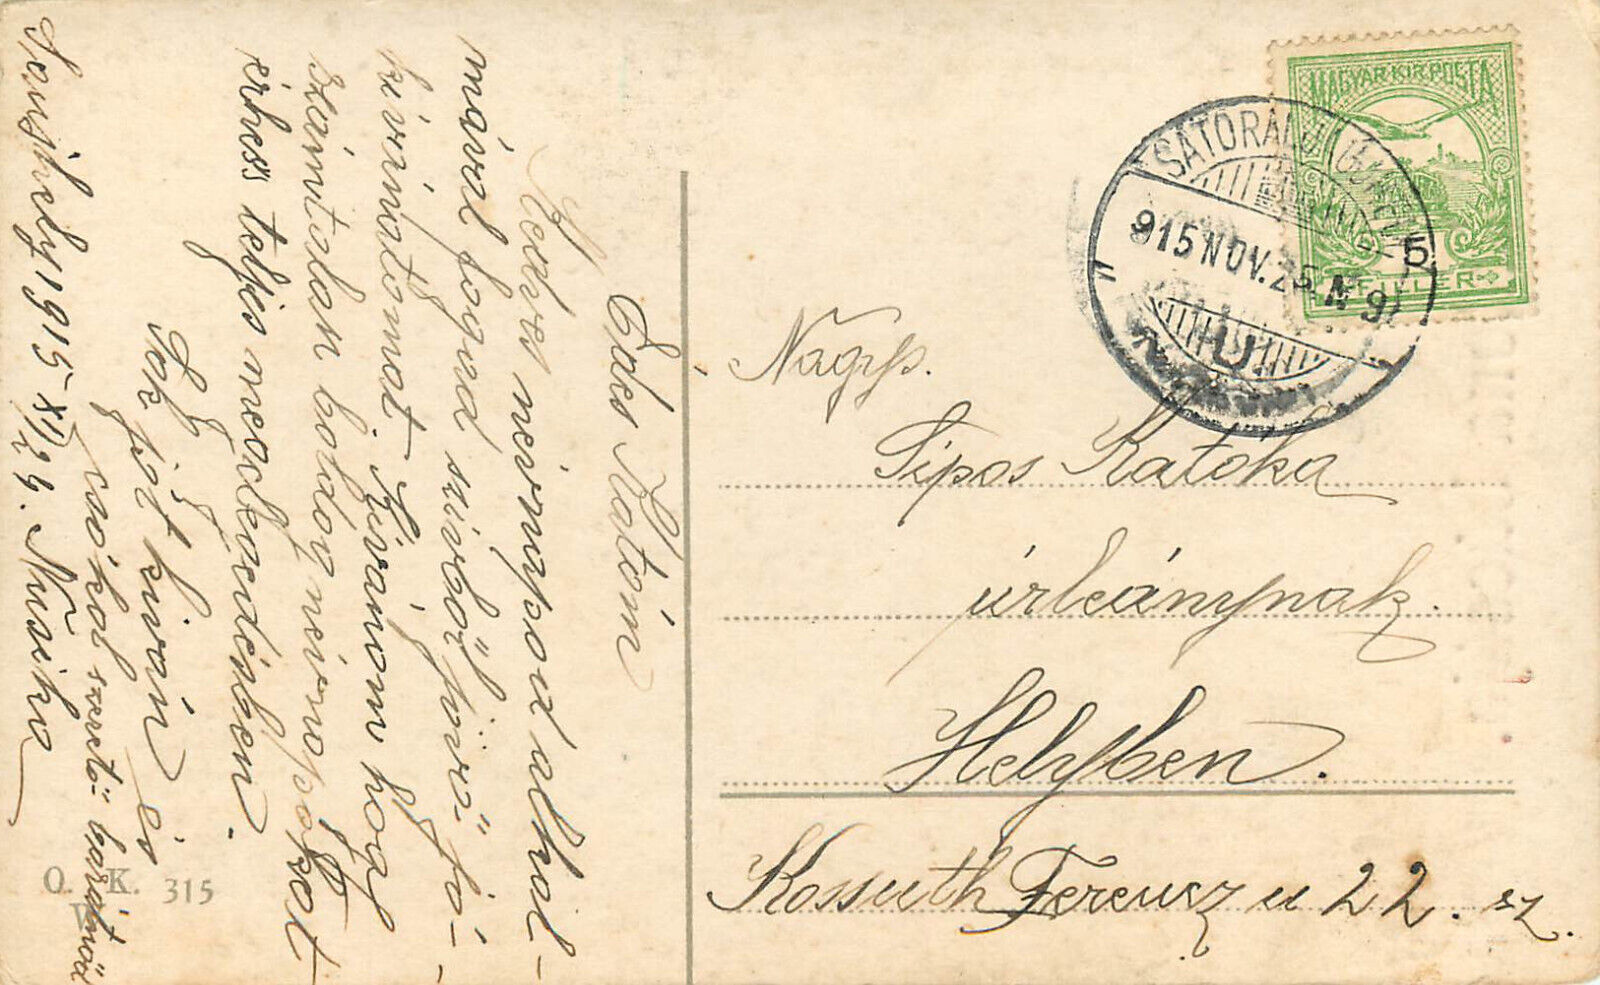 Édes Katóm
Kedves névnapod alkal-
mával fogad szívből jövő jó-
kívánatomat. Kívánom hogy
számtalan boldog névnapokat
érhess teljes megelégedésben.
Sok jót kíván és
csókol szerető barátnőd
Saujhely 1915 XI/24. Nusika
MAGYAR KIR. POSTA
5 FILLÉR
SÁTORALJAÚJHELY
915 NOV. 25. N 9
Nagys.
Sipos Katóka
úrleánynak.
Helyben.
Kossuth Ferencz u 22. sz.
O. K. 315